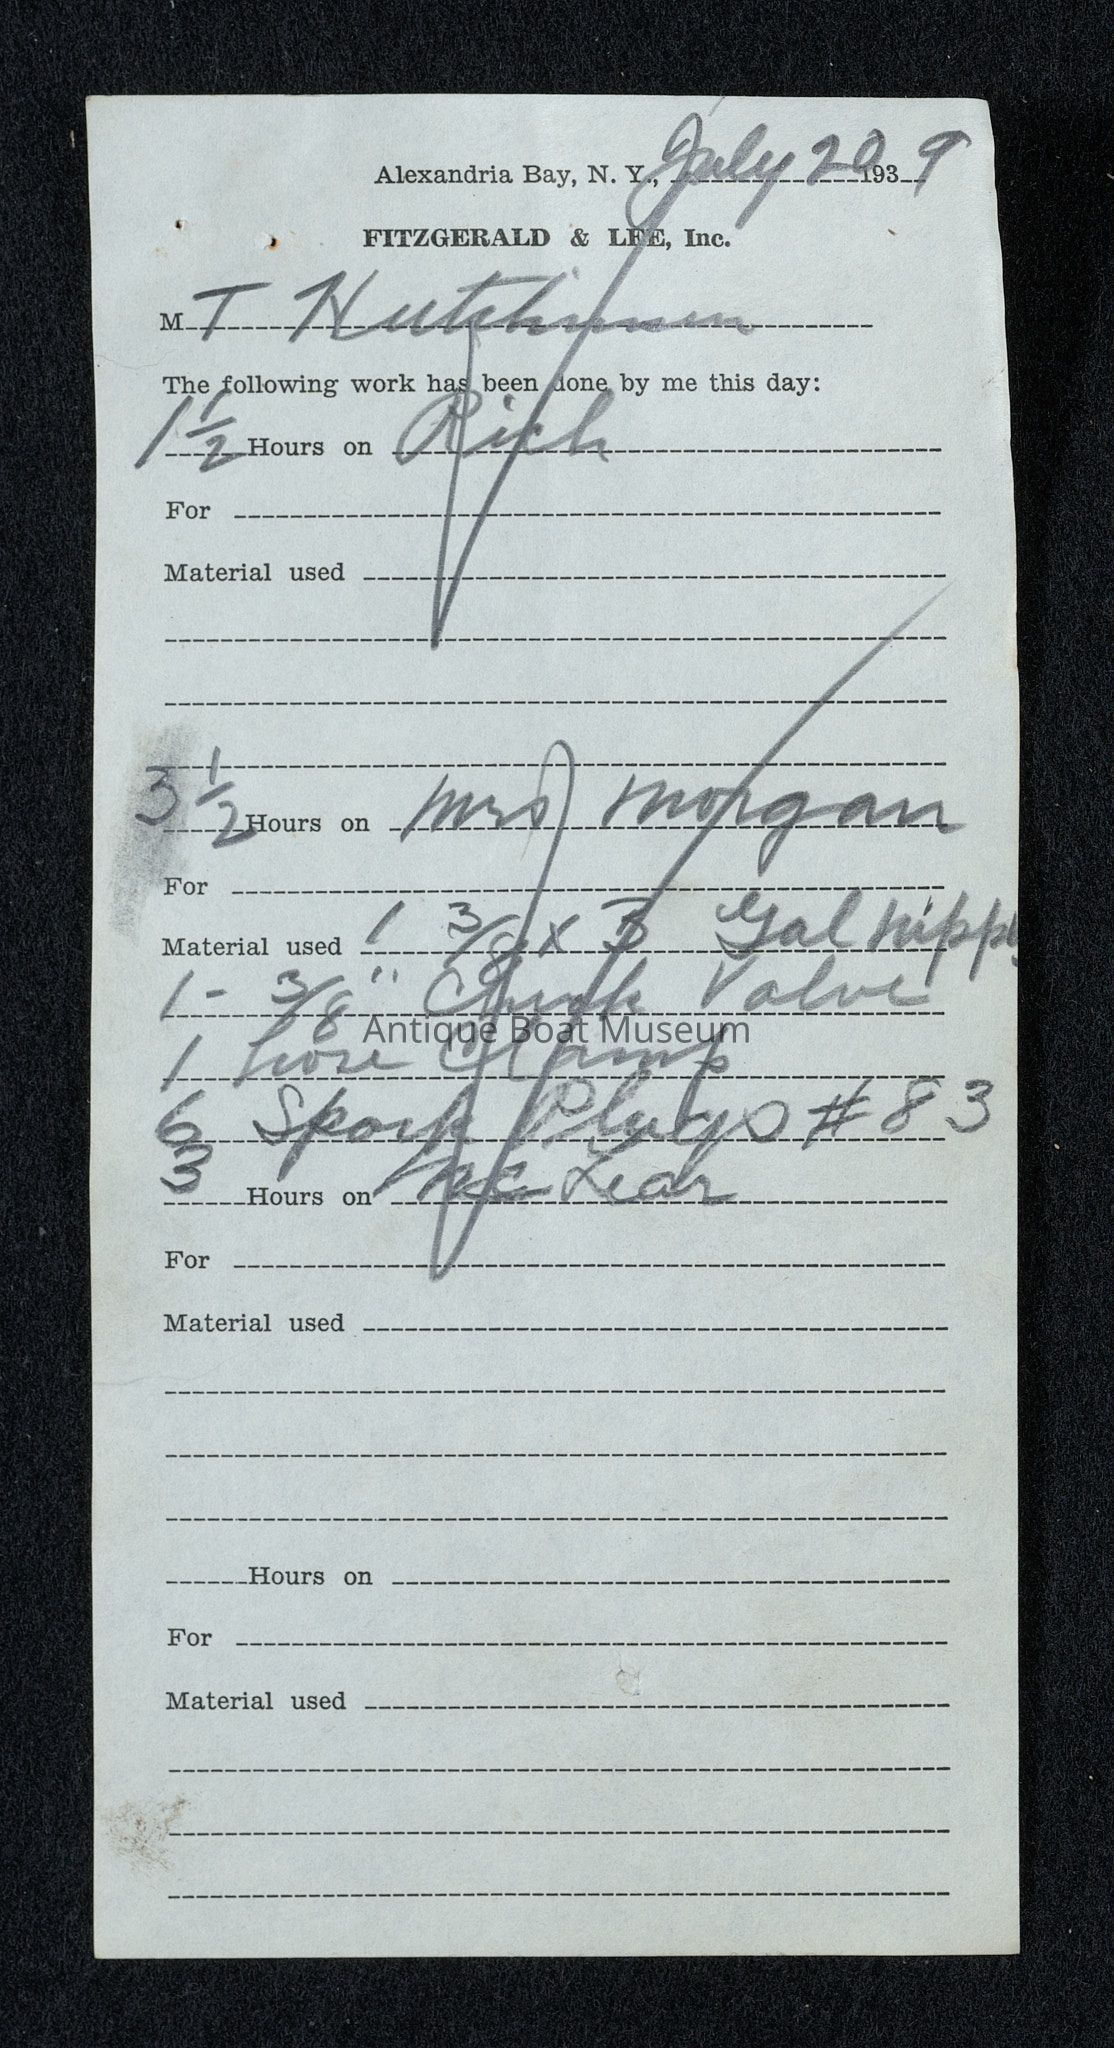 Alexandria Bay, N. Y., July 20 1939
FITZGERALD & LEE, Inc.
M T Hutchinson
The following work has been done by me this day:
1 1/2 Hours on Rich
For
Material used
3 1/2 Hours on Mrs Morgan
For
Material used 1 3/8 x 3 Gal nipple
1 - 3/8" Check Valve
Antique Boat Museum
1 hose Clamp
6 Spark Plugs # 83
3 Hours on Lear
For
Material used
Hours on
For
Material used